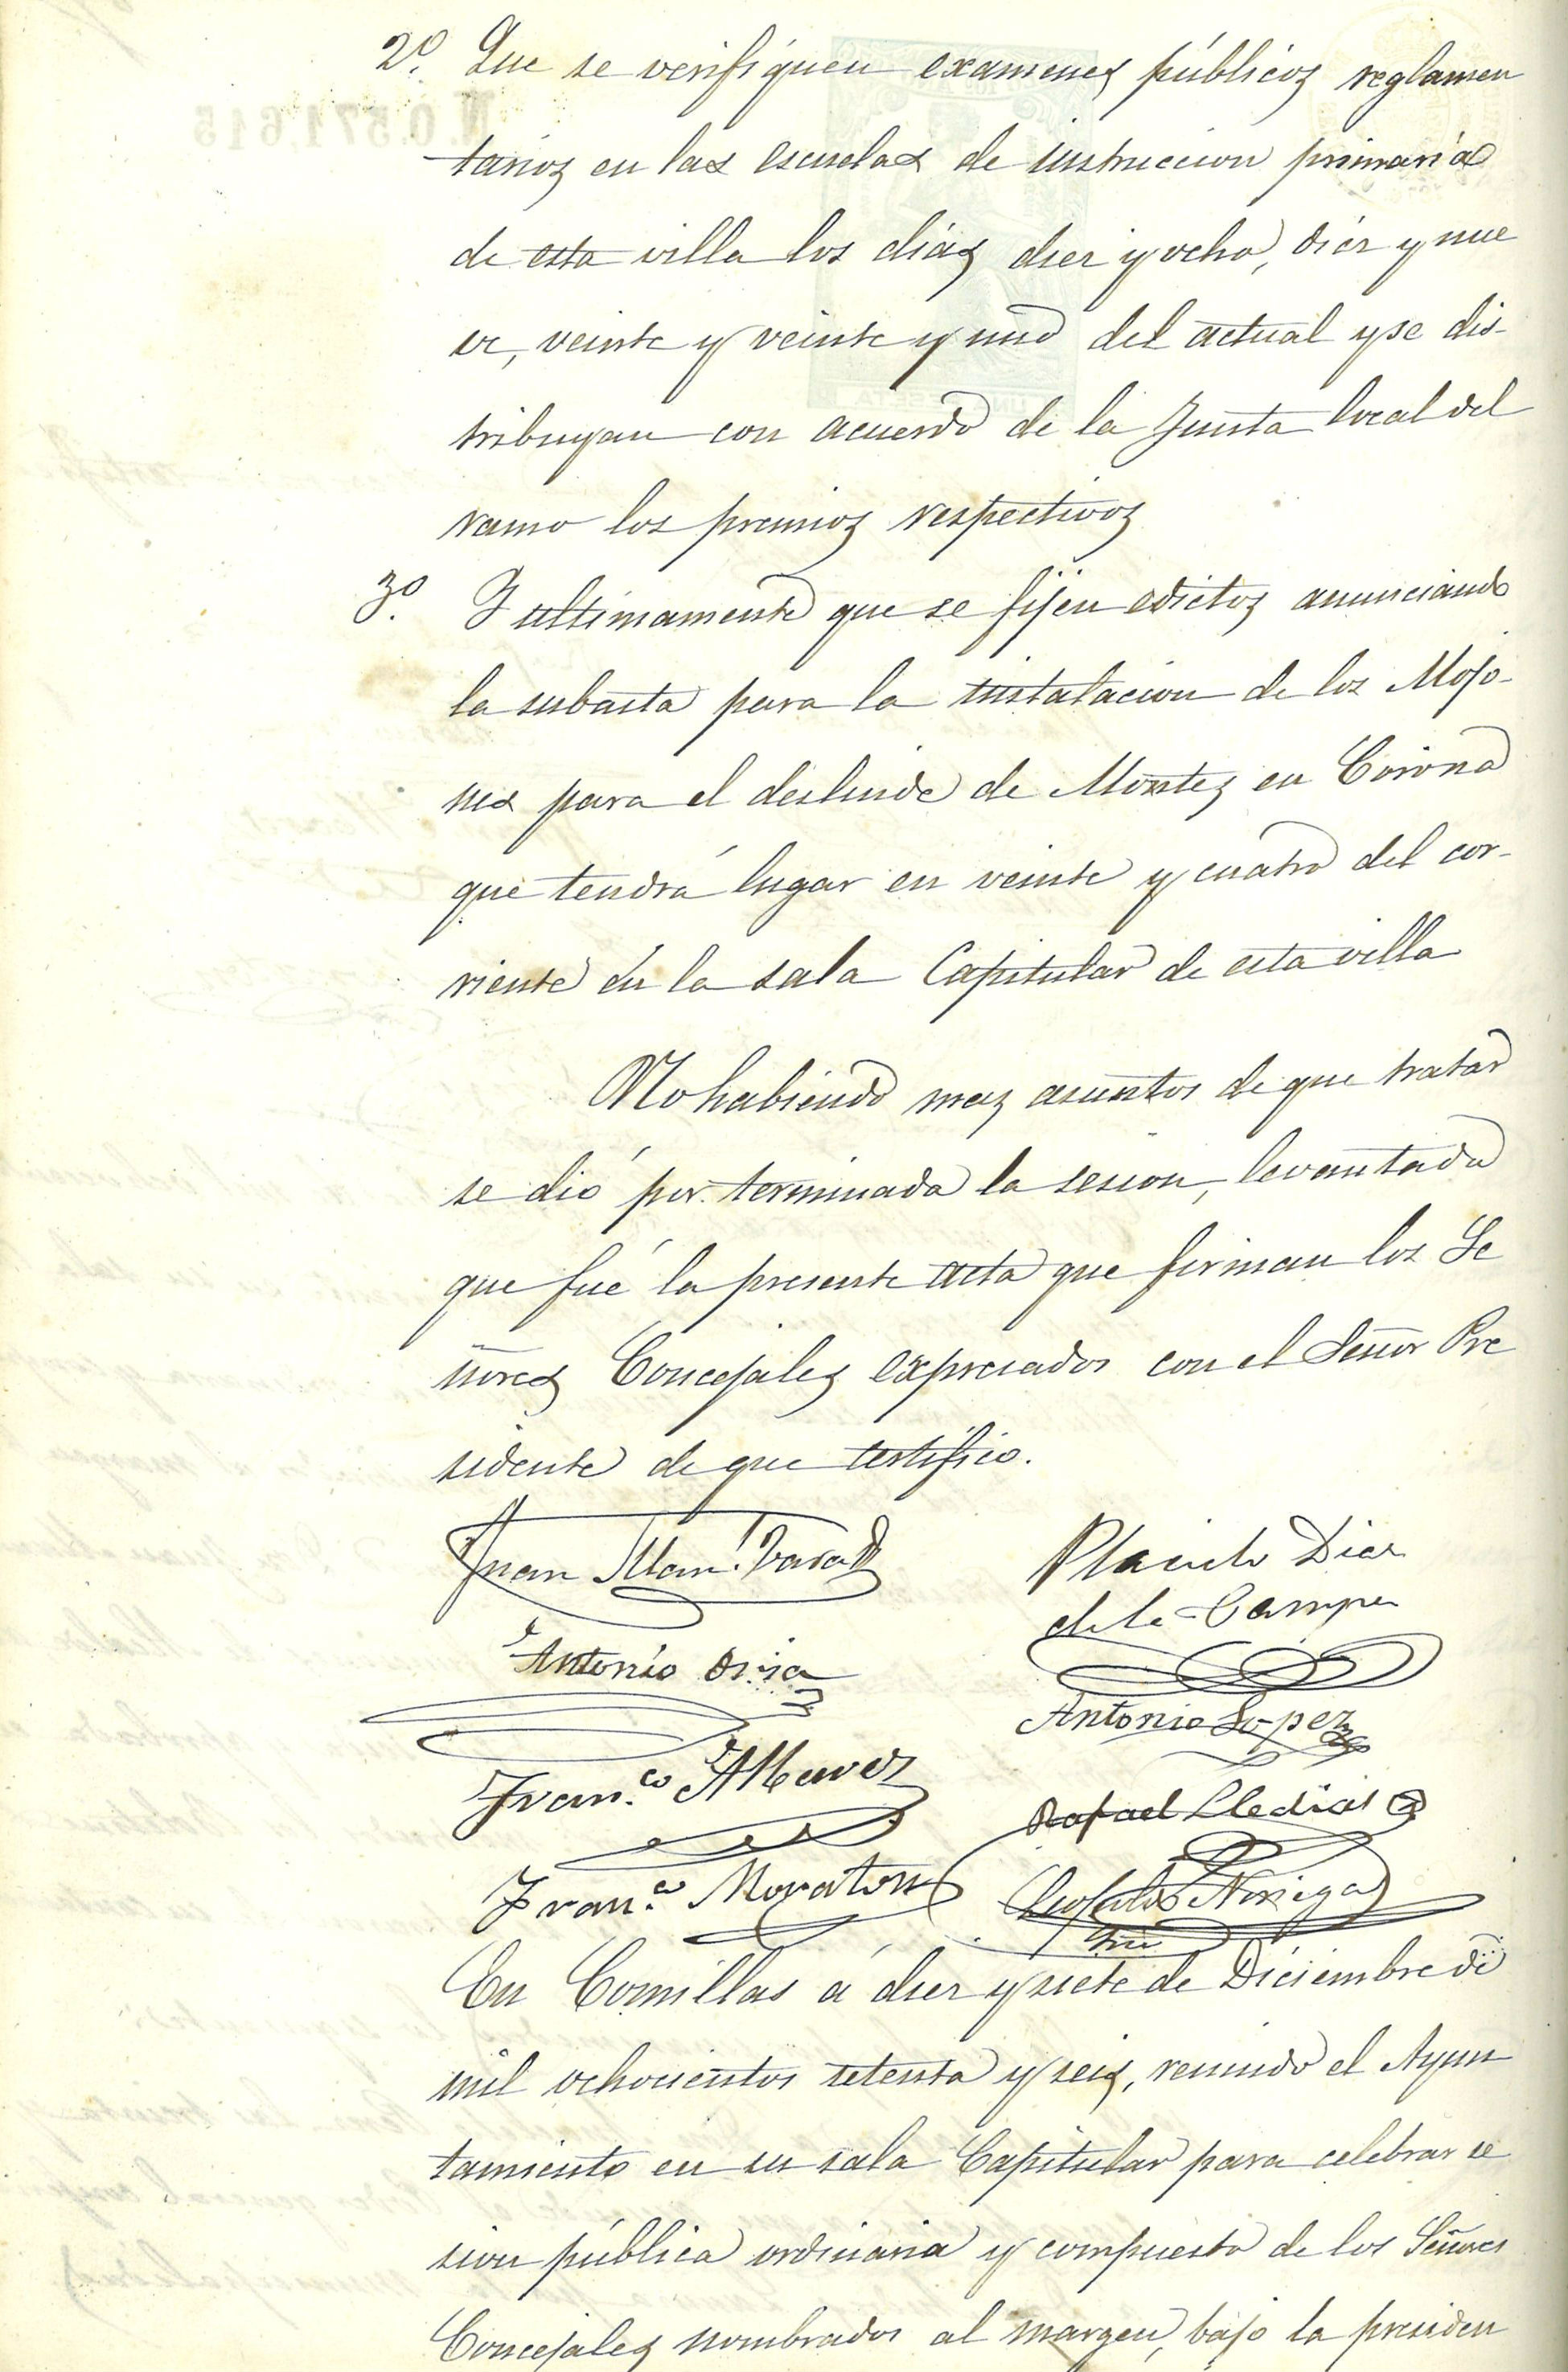 2º. Que se verifiquen examenes públicos reglamen
tarios en las escuelas de instruccion primaria
de esta villa los dias diez y ocho, diez y nue
ve, veinte y veinte y uno del actual y se dis-
tribuyan con acuerdo de la Junta local del
ramo los premios respectivos
3º. Y ultimamente que se fijen edictos anunciando
la subasta para la instalacion de los Mojo-
nes para el deslinde de Montes en Corona
que tendrá lugar en veinte y cuatro del cor-
riente en la sala Capitular de esta villa
No habiendo mas asuntos de que tratar
se dió por terminada la sesion, levantada
que fué la presente acta que firman los Se
ñores Concejales expresados con el Señor Pre
sidente de que testifico.
Juan Man.l
Placido Diaz
de la Campa
Antonio
Antonio Lopez
Fran.co
Rafael
Fran.co Moraton
Noriega
Srio
En Comillas á diez y siete de Diciembre de
mil ochocientos setenta y seis, reunido el Ayun
tamiento en su sala Capitular para celebrar se
sion pública ordinaria y compuesto de los Señores
Concejales nombrados al margen, bajo la presiden
N.0.571.615